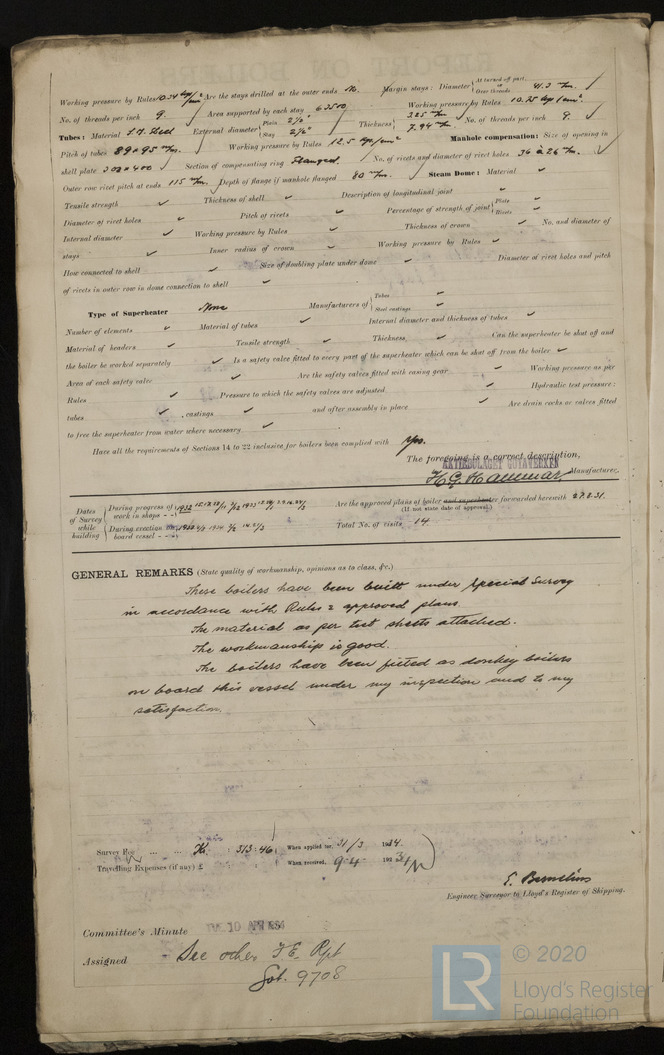 Working pressure by Rules 10.54 kg/cm² Are the stays drilled at the outer ends No. Margin stays: Diameter { At turned off part, or Over threads 41.3 m/m.
No. of threads per inch 9. Area supported by each stay 63500 Working pressure by Rules 10.75 kg/cm².
Tubes: Material S.M. Steel External diameter { Plain 2½" Stay 2½" Thickness { 3.25 m/m 7.94 m/m No. of threads per inch 9.
Pitch of tubes 89 x 95 m/m. Working pressure by Rules 12.5 kg/cm² Manhole compensation: Size of opening in
shell plate 300 x 400 Section of compensating ring Flanged. No. of rivets and diameter of rivet holes 36 à 26 m/m.
Outer row rivet pitch at ends 115 m/m. Depth of flange if manhole flanged 80 m/m. Steam Dome: Material
Tensile strength Thickness of shell Description of longitudinal joint
Diameter of rivet holes Pitch of rivets Percentage of strength of joint { Plate Rivets
Internal diameter Working pressure by Rules Thickness of crown No. and diameter of
stays Inner radius of crown Working pressure by Rules
How connected to shell Size of doubling plate under dome Diameter of rivet holes and pitch
of rivets in outer row in dome connection to shell
Type of Superheater None Manufacturers of { Tubes Steel castings
Number of elements Material of tubes Internal diameter and thickness of tubes
Material of headers Tensile strength Thickness Can the superheater be shut off and
the boiler be worked separately Is a safety valve fitted to every part of the superheater which can be shut off from the boiler
Area of each safety valve Are the safety valves fitted with easing gear Working pressure as per
Rules Pressure to which the safety valves are adjusted Hydraulic test pressure:
tubes , castings and after assembly in place Are drain cocks or valves fitted
to free the superheater from water where necessary
Have all the requirements of Sections 14 to 22 inclusive for boilers been complied with Yes.
The foregoing is a correct description,
AKTIEBOLAGET GÖTAVERKEN
H.G. Hammar, Manufacturer.
Dates of Survey while building { During progress of work in shops - - 1932
During erection on board vessel - - -
Are the approved plans of boiler and superheater forwarded herewith 27.8.31.
(If not state date of approval.)
Total No. of visits 14.
GENERAL REMARKS (State quality of workmanship, opinions as to class, &c.)
These boilers have been built under special survey
in accordance with Rules & approved plans.
The material as per test sheets attached.
The workmanship is good.
The boilers have been fitted as donkey boilers
on board this vessel under my inspection and to my
satisfaction.
Survey Fee ... ... Kr. : 313:46 When applied for, 31/3 1934.
Travelling Expenses (if any) £ When received, 9.4 1934
E. Bernelius
Engineer Surveyor to Lloyd's Register of Shipping.
Committee's Minute 10 APR 1934
Assigned See other F.E. Rpt
Got. 9708
LR
© 2020
Lloyd's Register
Foundation